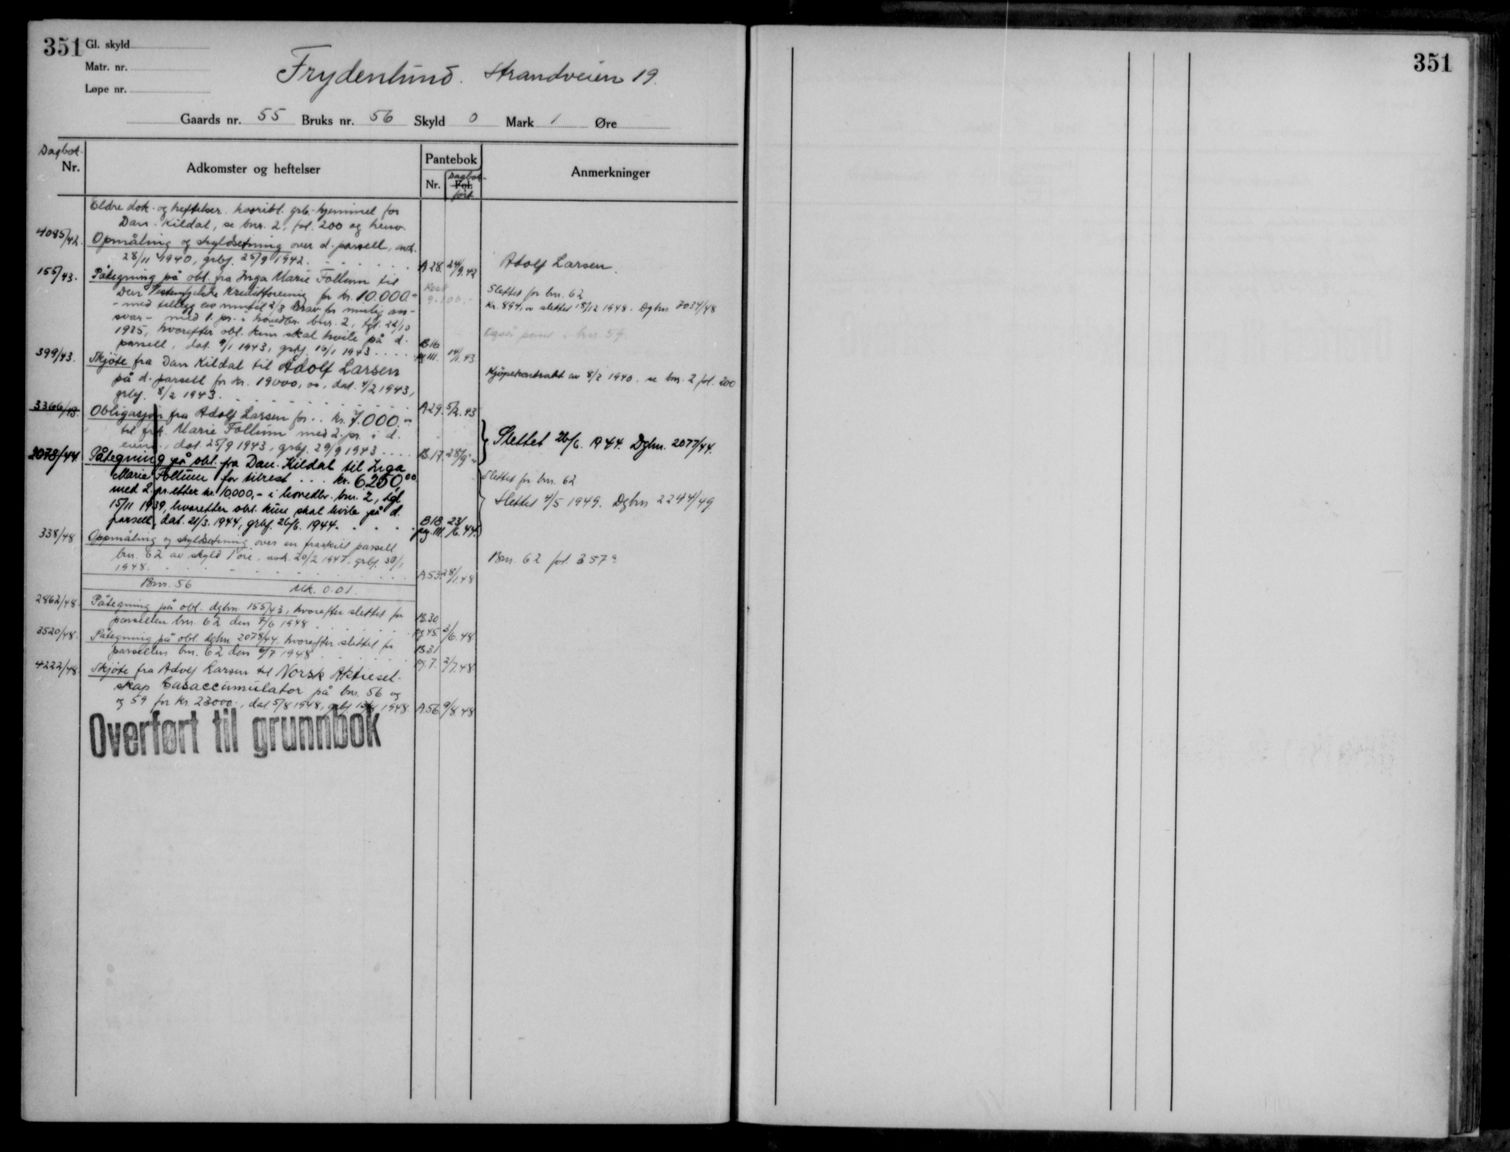 351 Gl. skyld
Matr. nr.
Løpe nr.
Frydenlund. Strandveien 19.
Gaards nr. 55 Bruks nr. 56 Skyld 0 Mark 1 Øre
351
Dagbok
Nr. Adkomster og heftelser Pantebok Anmerkninger
Nr. Dagbok
Eldre dok. og heftelser. grb. hjemmel for
Dan. Kildal, se bnr. 2, fol. 200 og
4085/42. Opmåling og skyldsetning over d. parsell, avh.
28/11 1940, grbf. 25/9 1942. A28 24/9.42 Adolf Larsen.
155/43. Påtegning på obl. fra Inga Marie Follum til
Den Kreditforening for kr. 10.000.-
- med tillegg av inntil 2/3
svar - med 1. pr. i hovedbr. bnr. 2, tgl.
1935, hvorefter obl. kun skal hvile på d.
parsell, dat. 9/1 1943, grbf. 15/1 1943 B16 14/1.43
Slettet for bnr. 62
slettet 18/12 1948. Dgbnr 7034/48
399/43. Skjøte fra Dan Kildal til Adolf Larsen
på d. parsell for kr. 19000, oo, dat. 4/2 1943,
grbf. 8/2 1943. A29 5/2.43
Kjøpekontrakt av 8/2 1940. se bnr. 2 fol. 200
3366/43. Obligasjon fra Adolf Larsen for kr. 7.000.-
til frk. Marie Follum med 2. pr. i d.
eiend., dat. 25/9 1943, grbf. 29/9 1943 B.17
Slettet 26/6. 1944. Dgbnr. 2077/44.
2078/44 Påtegning på obl. fra Dan. Kildal til Inga
Marie Follum for tilrest ... kr. 6250,00
med 2. pr. etter kr. 10.000,- i hovedbr. bnr. 2, tgl.
15/11 1939, hvoretter obl. kun skal hvile på d.
parsell, dat. 21/3. 1944, grbf. 26/6. 1944. B18 23/6.44.
Slettet for bnr. 62
Slettet 4/5 1949. Dgbnr 2244/49
338/48 Oppmåling og skyldsetning over en fraskilt parsell
bnr. 62 av skyld 1 øre. avh. 20/2 1947. grbf. 30/1
1948. A53 28/1.48
Bnr. 62 fol 357
Bnr. 56 Mk. 0.01.
2862/48. Påtegning på obl. dgbnr. 155/43, hvorefter slettet for
parsellen bnr. 62 den 7/6 1948 B30 3/6.48
3520/48. Påtegning på obl. dgbnr. 2078/44 hvorefter slettet for
parsellen bnr. 62 den 1948 B31 3/7.48
4222/48. Skjøte fra Adolf Larsen til Norsk Aktiesel-
skap Gasaccumulator på bnr. 56 og
og 59 for kr. 23000.-, dat 5/8 1948, 1948 A56 9/8.48
Overført til grunnbok